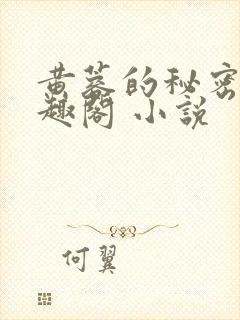 黄蓉的秘密
趣閣 小說
何翼